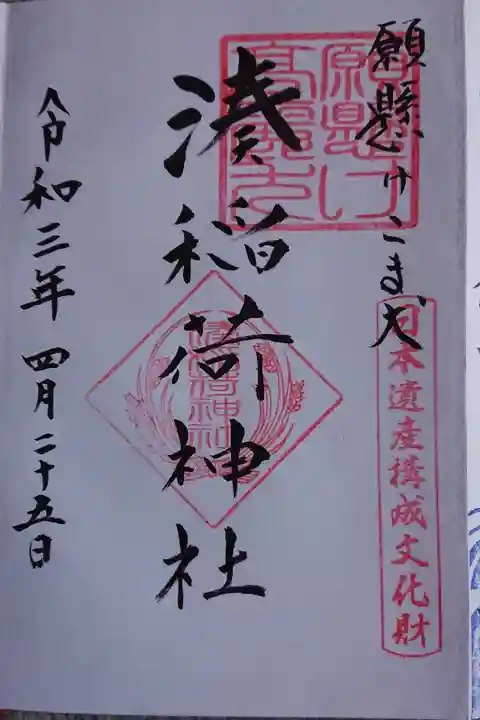 願懸けこま犬
日本遺産構成文化財
願懸け
高麗犬
湊稲荷神社
令和三年 四月二十五日